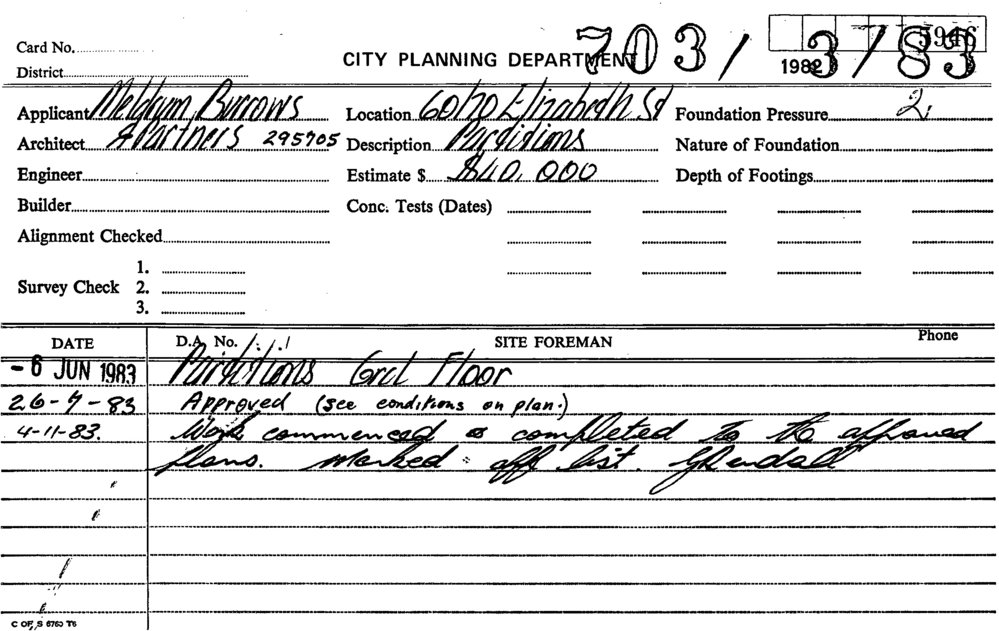 703/3/83
5946
Card No.
CITY PLANNING DEPARTMENT
1982
District
Applicant Meldrum Burrows Location 60/70 Elizabeth St Foundation Pressure 2.
Architect & Partners 295705 Description Partitions Nature of Foundation
Engineer Estimate $ $40,000 Depth of Footings
Builder Conc. Tests (Dates)
Alignment Checked
1.
Survey Check 2.
3.
DATE D.A. No. SITE FOREMAN Phone
- 6 JUN 1983 Partitions Grd Floor
26-7-83 Approved (see conditions on plan.)
4-11-83. Work commenced & completed to the approved
plans. Marked off list. GKendall
C OF S 6760 T6